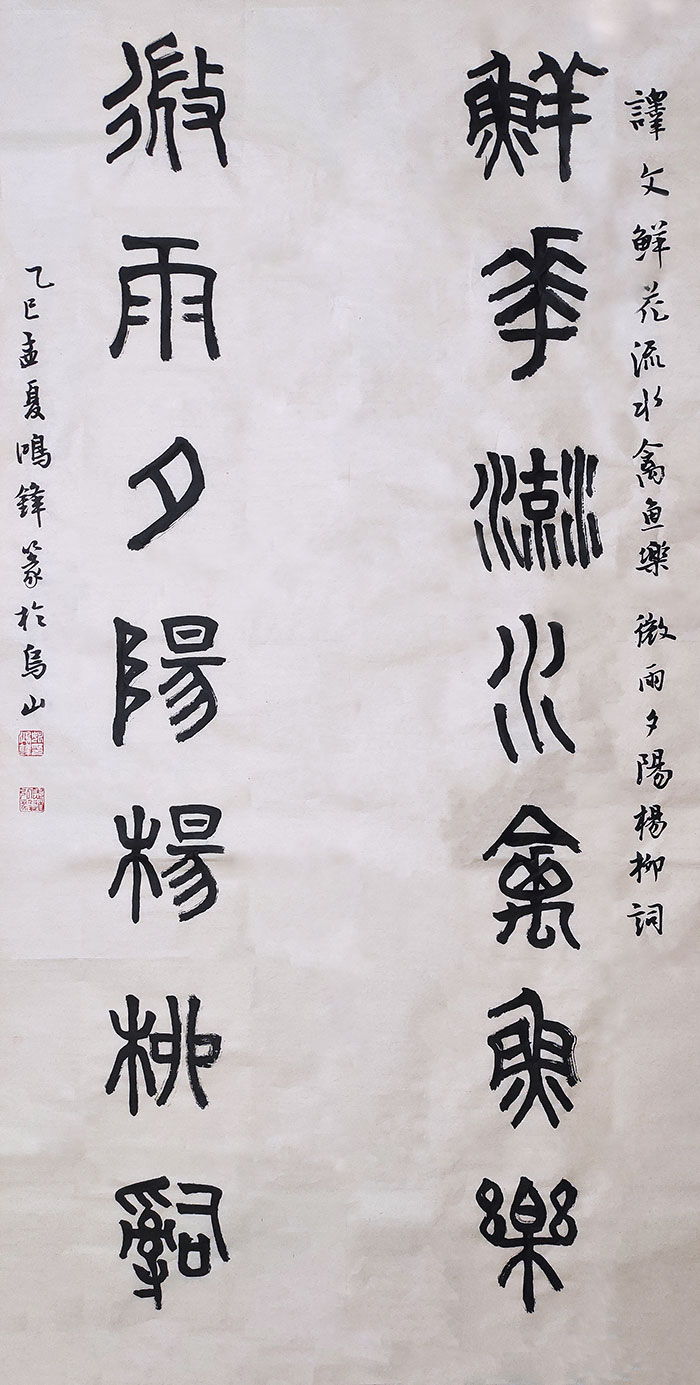 譯文鮮花流水禽鱼樂 微雨夕陽楊柳詞
鮮華流水禽魚樂
微雨夕陽楊柳辭
乙巳孟夏鳴鋒篆於烏山